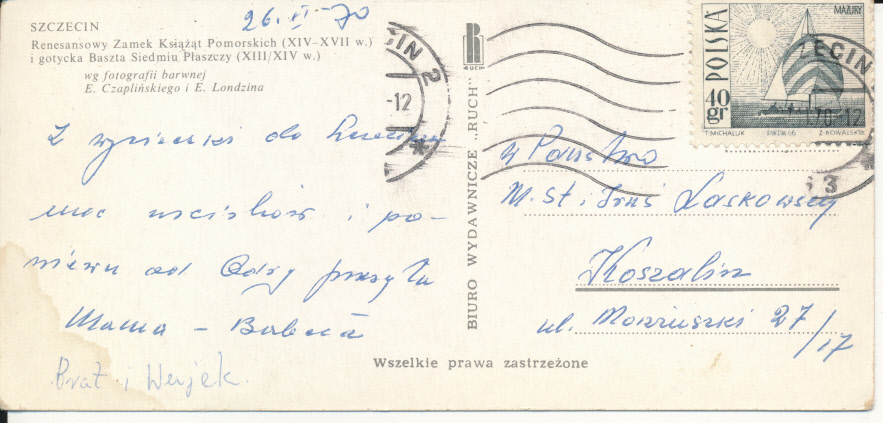 26.XI-70
SZCZECIN
Renesansowy Zamek Książąt Pomorskich (XIV-XVII w.)
i gotycka Baszta Siedmiu Płaszczy (XIII/XIV w.)
wg fotografii barwnej
E. Czaplińskiego i E. Londzina
Z wycieczki do
moc uścisków i po-
wiewu od Odry przesyła
Mama - Babcia
Brat i Wujek.
BIURO WYDAWNICZE „RUCH"
RUCH
Wszelkie prawa zastrzeżone
POLSKA
MAZURY
40 gr
T. MICHALUK PWPW 66 Z. KOWALSKI
CIN 2
-12
ZECIN
70-12
63
W Państwo
M. St. i Laskowscy
Koszalin
ul. Moniuszki 27/17